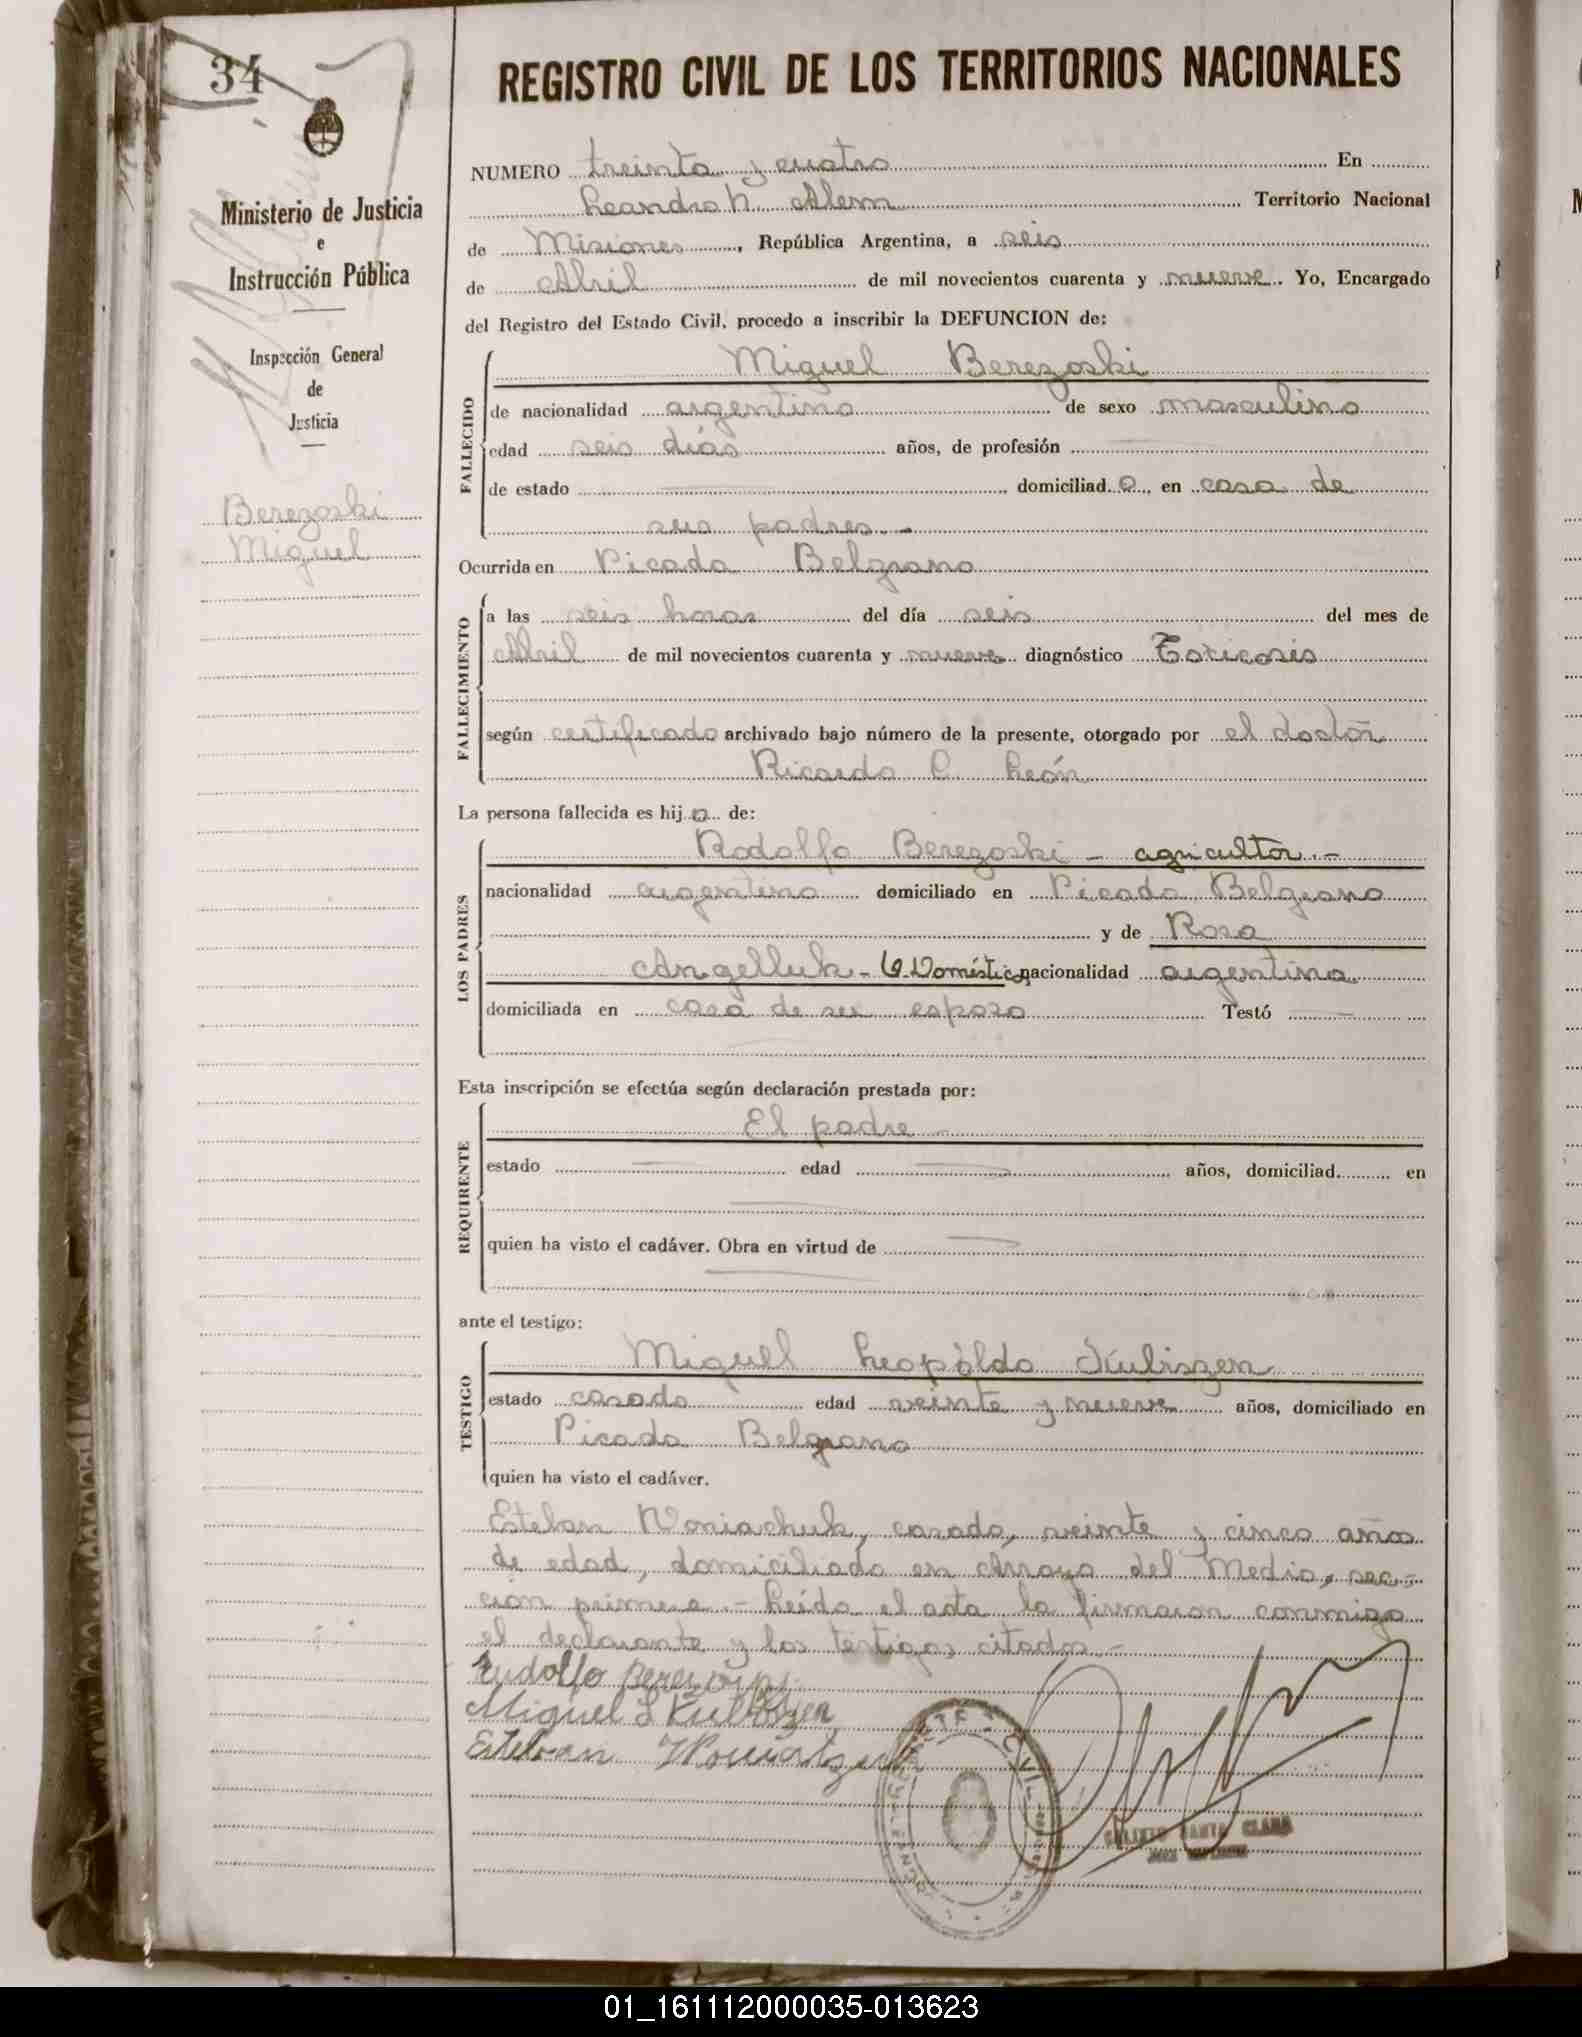 34
REGISTRO CIVIL DE LOS TERRITORIOS NACIONALES
Ministerio de Justicia
e
Instrucción Pública
Inspección General
de
Justicia
Berezoski
Miguel
NUMERO treinta y cuatro En
Leandro N. Alem Territorio Nacional
de Misiones, República Argentina, a seis
de Abril de mil novecientos cuarenta y nueve. Yo, Encargado
del Registro del Estado Civil, procedo a inscribir la DEFUNCION de:
FALLECIDO
Miguel Berezoski
de nacionalidad argentino de sexo masculino
edad seis días años, de profesión
de estado domiciliad o, en casa de
sus padres.-
Ocurrida en Picada Belgrano
FALLECIMIENTO
a las seis horas del día seis del mes de
Abril de mil novecientos cuarenta y nueve diagnóstico Toxicosis
según certificado archivado bajo número de la presente, otorgado por el doctor
Ricardo C. León
La persona fallecida es hij o de:
LOS PADRES
Rodolfo Berezoski - agricultor.-
nacionalidad argentino domiciliado en Picada Belgrano
y de Rosa
Angelluk - Q. Doméstic nacionalidad argentina
domiciliada en casa de su esposo Testó
Esta inscripción se efectúa según declaración prestada por:
REQUIRENTE
El padre -
estado edad años, domiciliad en
quien ha visto el cadáver. Obra en virtud de
ante el testigo:
TESTIGO
Miguel Leopoldo Kuliszen
estado casado edad veinte y nueve años, domiciliado en
Picada Belgrano
quien ha visto el cadáver.
Esteban Woniachuk, casado, veinte y cinco años
de edad, domiciliado en Arroyo del Medio, sec-
ción primera.- Leída el acta la firmaron conmigo
el declarante y los testigos citados.-
Rudolfo
Miguel L Kuliszen
Esteban
CALIXTO SANTA CLARA
01_161112000035-013623